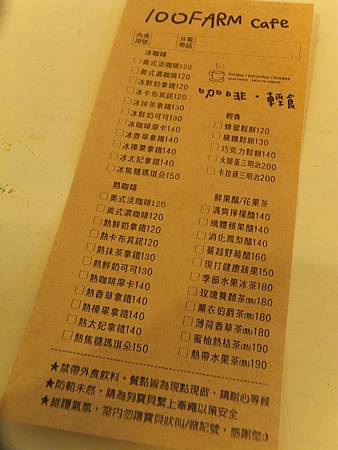 100FARM cafe
內桌用號
外電帶話
Friday / Saturday / Sunday
咖啡·輕食
冰咖啡
美式淡咖啡120
美式濃咖啡120
冰鮮奶拿鐵120
冰卡布其諾120
冰抹茶拿鐵130
冰鮮奶可可130
冰咖啡摩卡140
冰香草拿鐵140
冰榛果拿鐵140
冰太妃拿鐵140
冰焦糖瑪琪朵150
熱咖啡
美式淡咖啡120
美式濃咖啡120
熱鮮奶拿鐵120
熱卡布其諾120
熱抹茶拿鐵130
熱鮮奶可可130
熱咖啡摩卡140
熱香草拿鐵140
熱榛果拿鐵140
熱太妃拿鐵140
熱焦糖瑪琪朵150
輕食
蜂蜜鬆餅120
楓糖鬆餅130
巧克力鬆餅140
火腿蛋三明治200
卡拉雞三明治200
鮮果醋/花果茶
清爽檸檬醋140
纖體蘋果醋140
消化鳳梨醋140
蔓越莓醋160
現打健康蔬果150
季節水果冰茶180
玫瑰養顏茶(熱)180
薰衣伯爵茶(熱)180
薄荷香草茶(熱)180
蜜柚熱桔茶(熱)190
熱帶水果茶(熱)190
★禁帶外食飲料。餐點皆為現點現做，請耐心等候
★防範未然，請為狗寶貝繫上牽繩以策安全
★維護氣氛，室內勿讓寶貝吠叫/做記號，感謝您:)